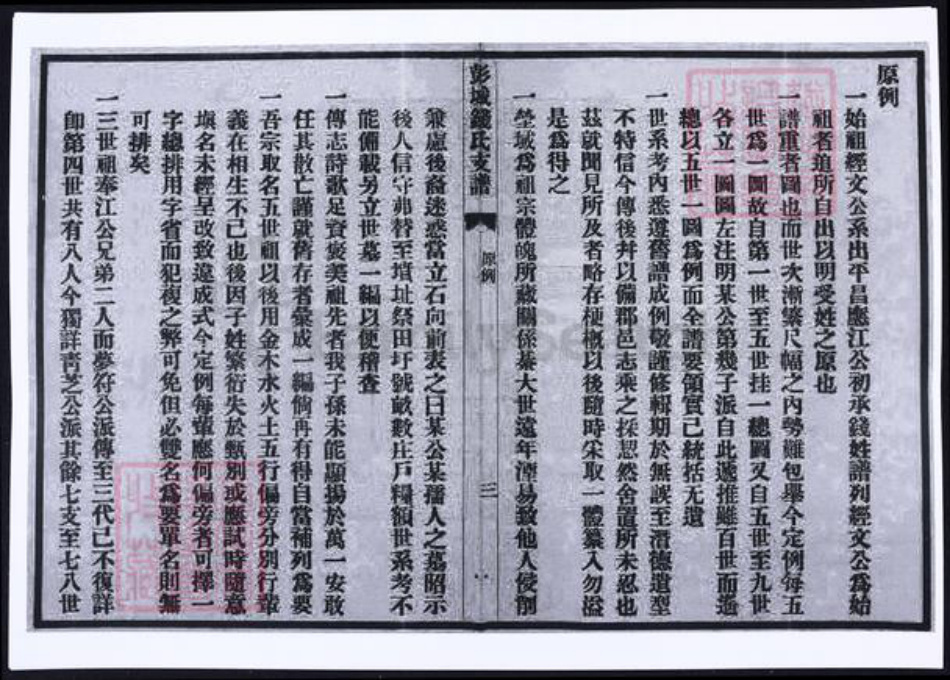 原例
一始祖經文公系出平昌應江公初承錢姓譜列經文公爲始
祖者追所自出以明受姓之原也
一譜重者圖也而世次漸繁尺幅之內勢難包舉今定例每五
世爲一圖故自第一世至五世挂一總圖又自五世至九世
各立一圖圖左注明某公第幾子派自此遞推雖百世而遙
總以五世一圖爲例而全譜要領實已統括无遺
一世系考內悉遵舊譜成例敬謹修輯期於無誤至潛德遺型
不特信今傳後并以備郡邑志乘之採恝然舍置所未忍也
茲就聞見所及者略存梗概以後隨時采取一體纂入勿溢
是爲得之
一塋域爲祖宗體魄所藏關係綦大世遠年湮易致他人侵削
彭城錢氏支譜
原例
三
兼慮後裔迷惑當立石向前表之曰某公某孺人之墓昭示
後人信守弗替至墳址祭田圩號畝數庄戶糧額世系考不
能備載另立世墓一編以便稽查
一傳志詩歌足資褒美祖先者我子孫未能顯揚於萬一安敢
任其散亡謹就舊存者彙成一編倘再有得自當補列爲要
一吾宗取名五世祖以後用金木水火土五行偏旁分別行輩
義在相生不已也後因子姓繁衍失於甄別或應試時隨意
填名未經呈改致違成式今定例每輩應何偏旁者可擇一
字總排用字省而犯複之弊可免但必雙名爲要單名則無
可排矣
一三世祖奉江公兄弟二人而夢符公派傳至三代已不復詳
卽第四世共有八人今獨詳靑芝公派其餘七支至七八世